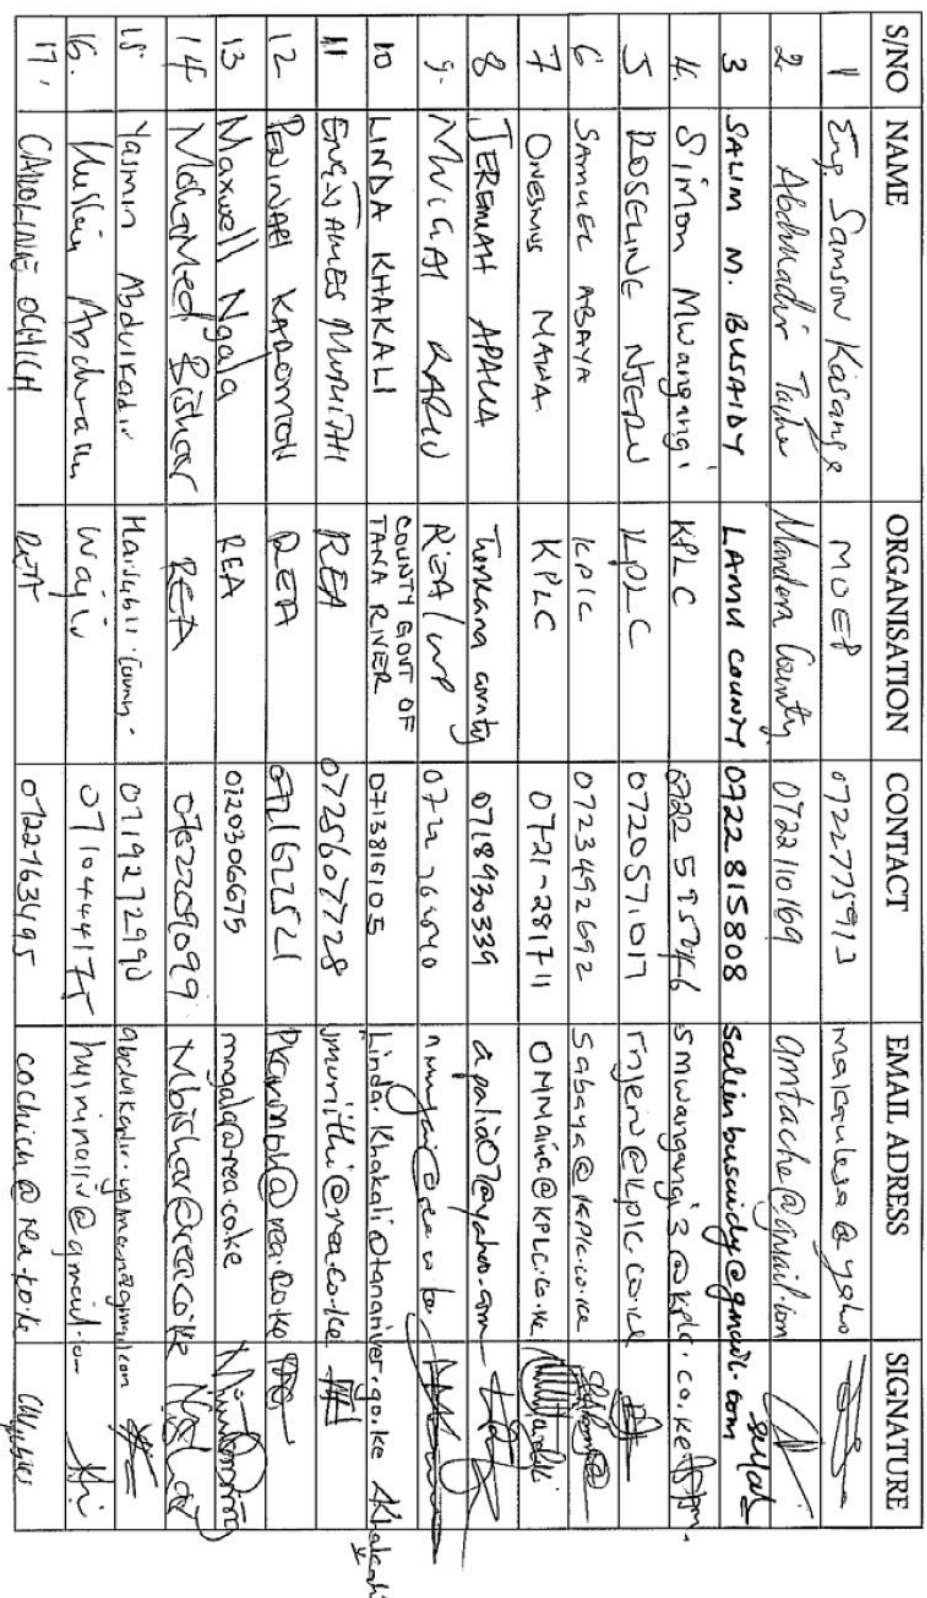 S/NO NAME ORGANISATION CONTACT EMAIL ADRESS SIGNATURE
1 Eng. Samson Kasange MOEP 0722775913 @ yaho
2 Abdikadir Tache Mandera County 0722110169 amtache@gmail.com
3 SALIM M. BUSAIDY LAMU COUNTY 0722815808 salimbusaidy@gmail.com
4. Simon Mwangangi KPLC 0722 595746 smwangangi3@kplc.co.ke
5 ROSELINE NJERU KPLC 0720571017 rnjeru@kplc.co.ke
6 SAMUEL ABAYA KPLC 0723492692 sabaya@kplc.co.ke
7 ONESMUS MAINA KPLC 0721-281711 OMMaina@KPLC.co.ke
8 JEREMIAH APALIA Turkana county 0718930339 apalia07@yahoo.com
9. MWIGAI KARIU REA/
10 LINDA KHAKALI COUNTY GOVT OF
TANA RIVER 0713816105 Linda.Khakali@tanariver.go.ke
11 ENG. JAMES MURIITHI REA 0725607728 jmuriithi@rea.co.ke
12 PENINAH KAROMOH REA 0721672521 @rea.co.ke
13 Maxwell Ngala REA 0720306675 mngala@rea.co.ke
14 Mohamed Bishar REA 0702209099 Mbishar@rea.co.ke
15 Yasmin Abdulkadir County. 0719272990
16. Abdirahim Wajir 0710444175
17. CAROLINE OCHICH REA 0722763495 cochich@rea.co.ke